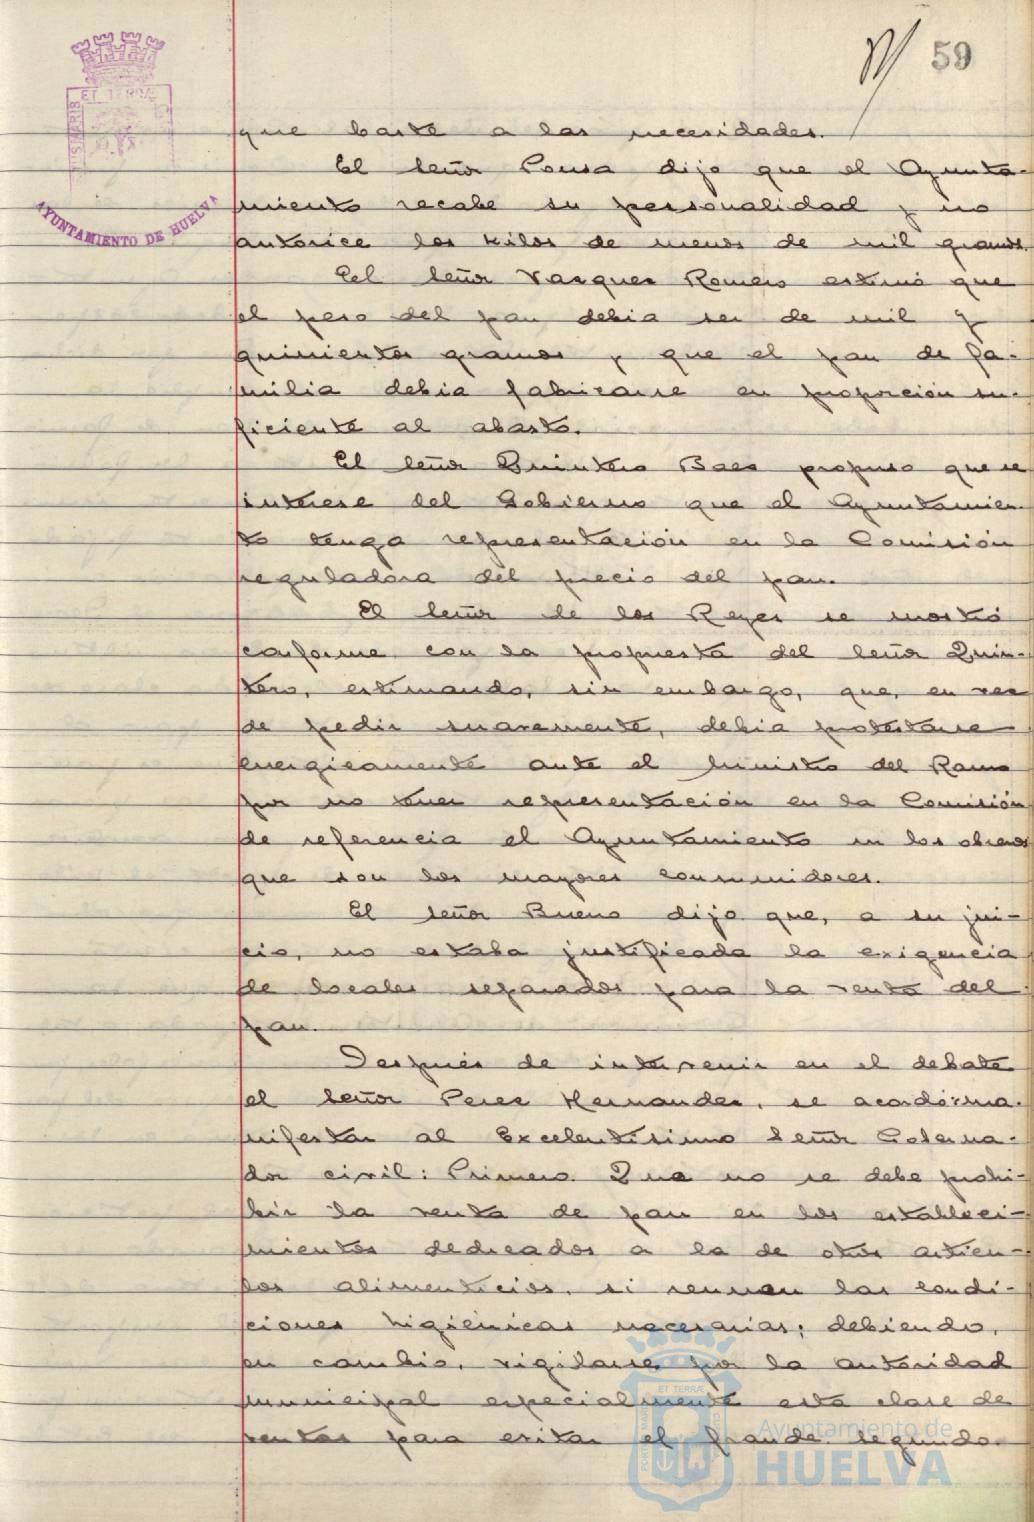 59
ET TERRÆ
AYUNTAMIENTO DE HUELVA
que baste a las necesidades.
El señor Ponsa dijo que el Ayunta-
miento recabe su personalidad y no
autorice los kilos de menos de mil gramos.
El señor Vazquez Romero estimó que
el peso del pan debia ser de mil y
quinientos gramos y que el pan de fa-
milia debia fabricarse en proporción su-
ficiente al abasto.
El señor Quintero Baez propuso que se
interese del Gobierno que el Ayuntamien-
to tenga representación en la Comisión
reguladora del precio del pan.
El señor de los Reyes se mostró
conforme con la propuesta del señor Quin-
tero, estimando, sin embargo, que, en vez
de pedir suavemente, debia protestarse
energicamente ante el Ministro del Ramo
por no tener representación en la Comisión
de referencia el Ayuntamiento ni los obreros
que son los mayores consumidores.
El señor Bueno dijo que, a su jui-
cio, no estaba justificada la exigencia
de locales separados para la venta del
pan.
Después de intervenir en el debate
el señor Perez Hernandez, se acordó ma-
nifestar al Excelentisimo Señor Goberna-
dor civil: Primero. Que no se debe prohi-
bir la venta de pan en los estableci-
mientos dedicados a la de otros artícu-
los alimenticios, si reunen las condi-
ciones higiénicas necesarias; debiendo,
en cambio, vigilarse por la autoridad
municipal especialmente esta clase de
ventas para evitar el fraude. Segundo.
Ayuntamiento de
HUELVA